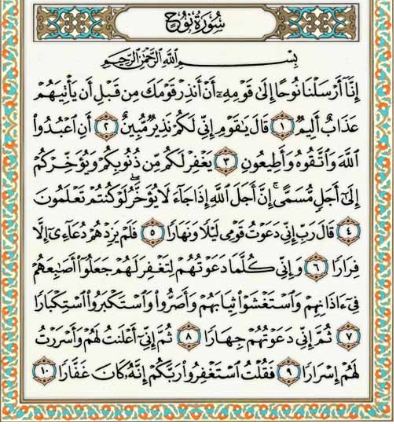 سُورَةُ نُوحٍ
بِسْمِ اللَّهِ الرَّحْمَٰنِ الرَّحِيمِ
إِنَّا أَرْسَلْنَا نُوحًا إِلَىٰ قَوْمِهِ أَنْ أَنْذِرْ قَوْمَكَ مِن قَبْلِ أَن يَأْتِيَهُمْ
عَذَابٌ أَلِيمٌ ١ قَالَ يَاقَوْمِ إِنِّي لَكُمْ نَذِيرٌ مُّبِينٌ ٢ أَنِ اعْبُدُوا
اللَّهَ وَاتَّقُوهُ وَأَطِيعُونِ ٣ يَغْفِرْ لَكُم مِّن ذُنُوبِكُمْ وَيُؤَخِّرْكُمْ
إِلَىٰ أَجَلٍ مُّسَمًّى إِنَّ أَجَلَ اللَّهِ إِذَا جَاءَ لَا يُؤَخَّرُ لَوْ كُنتُمْ تَعْلَمُونَ
٤ قَالَ رَبِّ إِنِّي دَعَوْتُ قَوْمِي لَيْلًا وَنَهَارًا ٥ فَلَمْ يَزِدْهُمْ دُعَاءِي إِلَّا
فِرَارًا ٦ وَإِنِّي كُلَّمَا دَعَوْتُهُمْ لِتَغْفِرَ لَهُمْ جَعَلُوا أَصَابِعَهُمْ
فِي آذَانِهِمْ وَاسْتَغْشَوْا ثِيَابَهُمْ وَأَصَرُّوا وَاسْتَكْبَرُوا اسْتِكْبَارًا
٧ ثُمَّ إِنِّي دَعَوْتُهُمْ جِهَارًا ٨ ثُمَّ إِنِّي أَعْلَنتُ لَهُمْ وَأَسْرَرْتُ
لَهُمْ إِسْرَارًا ٩ فَقُلْتُ اسْتَغْفِرُوا رَبَّكُمْ إِنَّهُ كَانَ غَفَّارًا ١٠